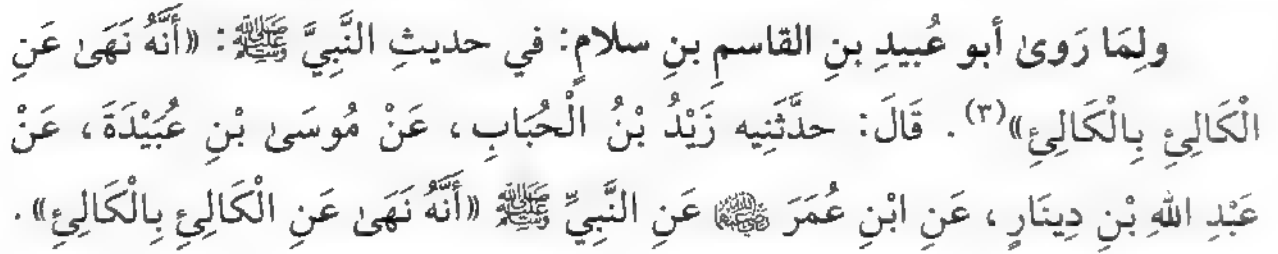 ولِمَا رَوىٰ أبو عُبيدِ بنِ القاسمِ بنِ سلامٍ: في حديثِ النَّبِيَّ ﷺ: «أَنَّهُ نَهَىٰ عَنِ
الْكَالِئِ بِالْكَالِئِ»(٣). قَالَ: حدَّثَنِيه زَيْدُ بْنُ الْحُبَابِ، عَنْ مُوسَىٰ بْنِ عُبَيْدَةَ، عَنْ
عَبْدِ اللهِ بْنِ دِينَارٍ، عَنِ ابْنِ عُمَرَ ﵄ عَنِ النَّبِيِّ ﷺ «أَنَّهُ نَهَىٰ عَنِ الْكَالِئِ بِالْكَالِئِ».